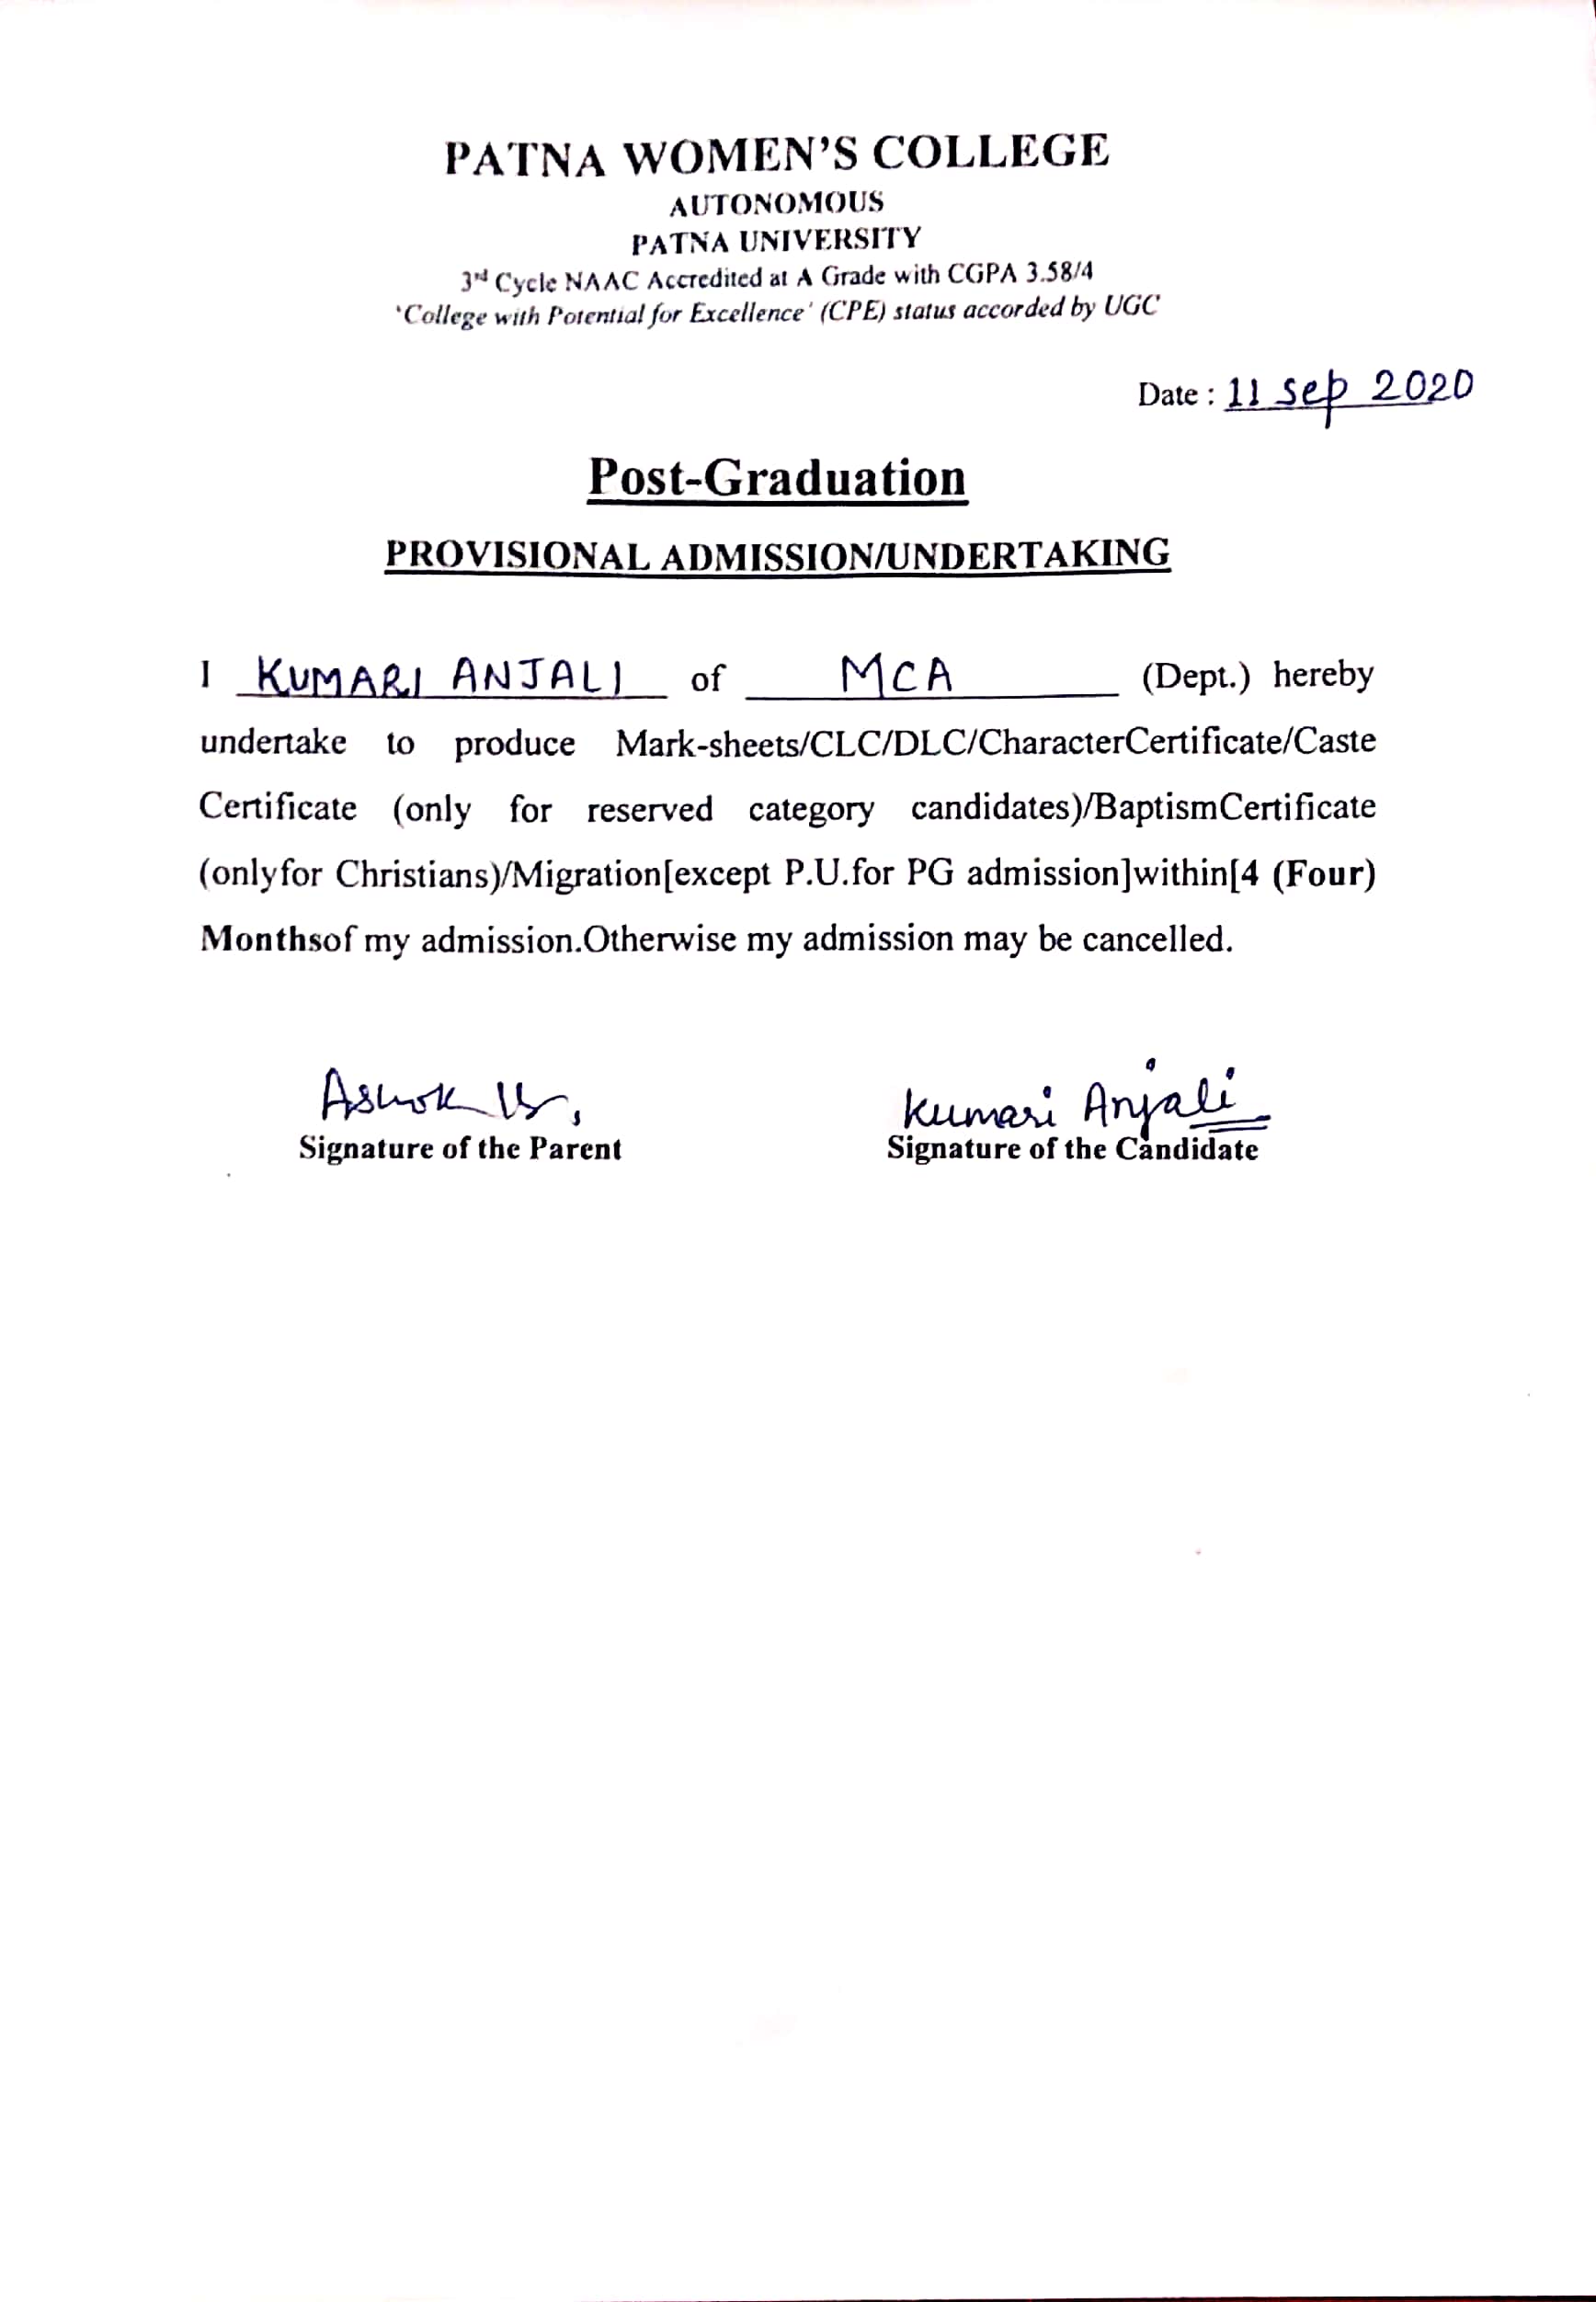 PATNA WOMEN'S COLLEGE
AUTONOMOUS
PATNA UNIVERSITY
3rd Cycle NAAC Accredited at A Grade with CGPA 3.58/4
'College with Potential for Excellence' (CPE) status accorded by UGC
Date : 11 Sep 2020
Post-Graduation
PROVISIONAL ADMISSION/UNDERTAKING
I KUMARI ANJALI of MCA (Dept.) hereby
undertake to produce Mark-sheets/CLC/DLC/CharacterCertificate/Caste
Certificate (only for reserved category candidates)/BaptismCertificate
(onlyfor Christians)/Migration[except P.U.for PG admission]within[4 (Four)
Monthsof my admission.Otherwise my admission may be cancelled.
Ashok Kumari Anjali
Signature of the Parent Signature of the Candidate